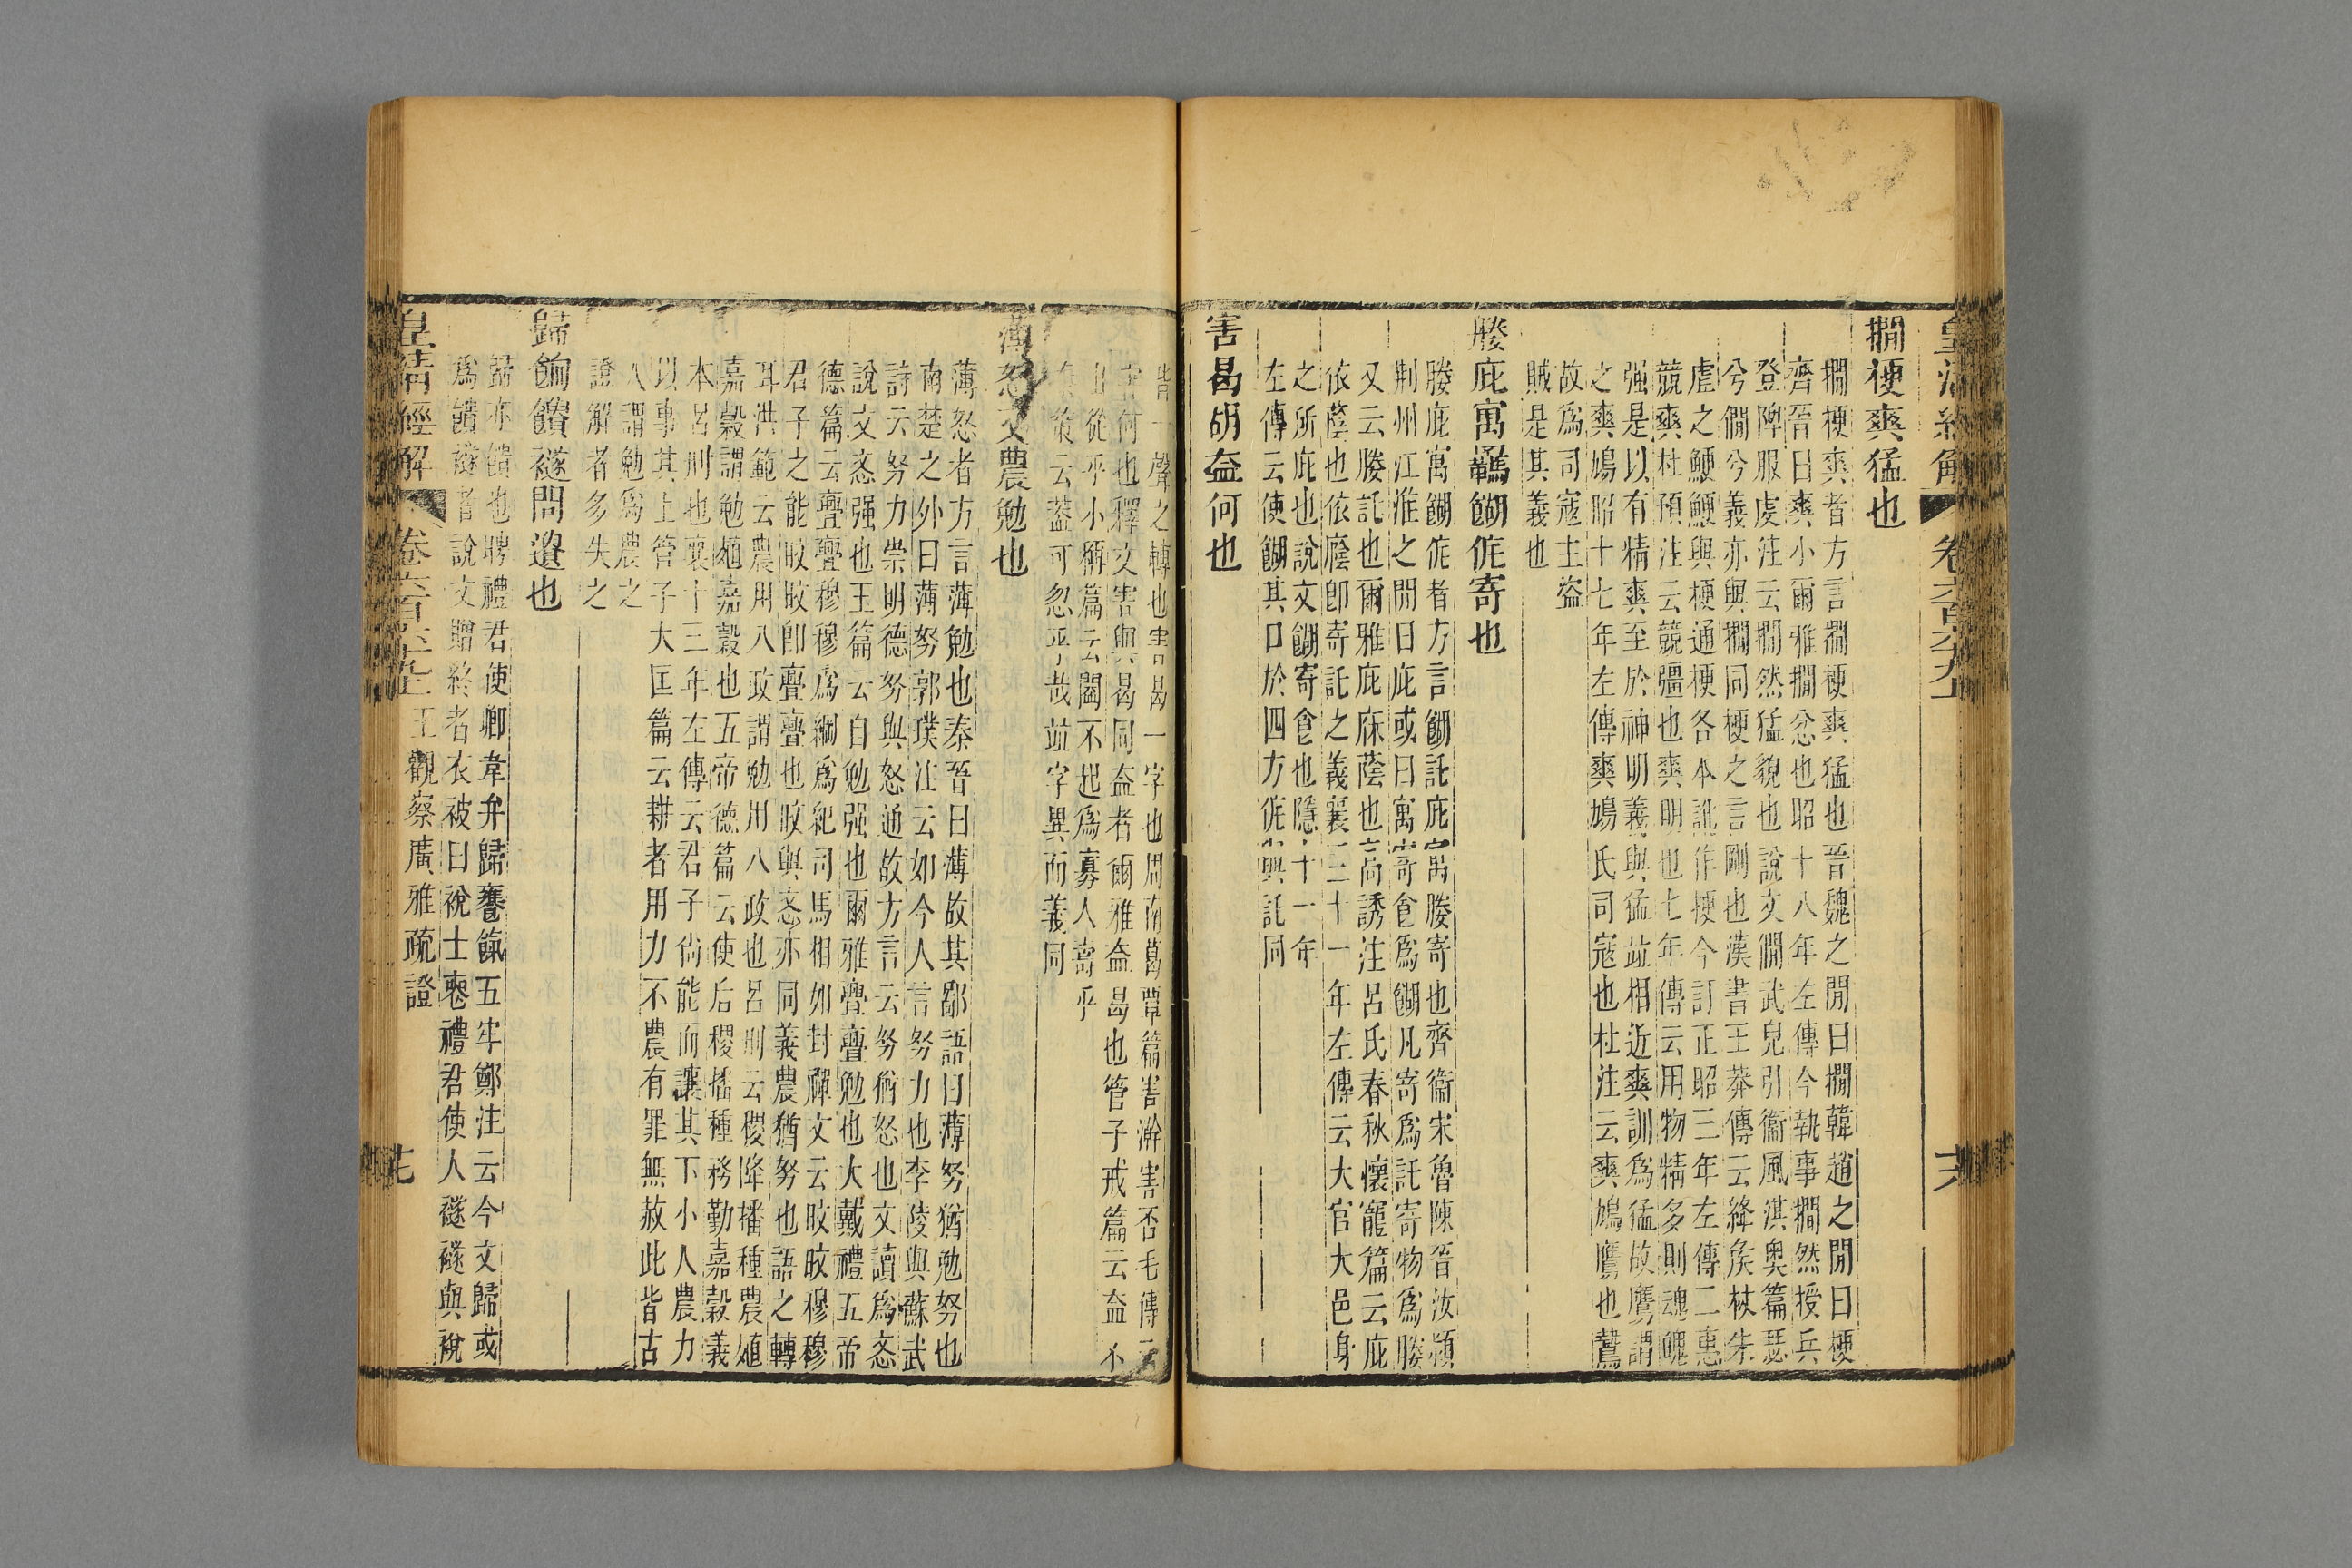 皇清經解 卷六百六十九上 六
撊梗爽猛也
撊梗爽者方言撊梗爽猛也晉魏之閒曰撊韓趙之閒曰梗
齊晉曰爽小爾雅撊忿也昭十八年左傳今執事撊然授兵
登陴服虔注云撊然猛貌也說文僩武皃引衞風淇奥篇瑟
兮僩兮義亦與撊同梗之言剛也漢書王莽傳云絳矦杖朱
虛之鯁鯁與梗通梗各本訛作挭今訂正昭三年左傳二惠
競爽杜預注云競彊也爽明也七年傳云用物精多則魂魄
强是以有精爽至於神明義與猛竝相近爽訓爲猛故鷹謂
之爽鳩昭十七年左傳爽鳩氏司寇也杜注云爽鳩鷹也鷙
故爲司寇主盜
賊是其義也
媵庇寓羇餬侂寄也
媵庇寓餬侂者方言餬託庇寓媵寄也齊衞宋魯陳晉汝潁
荆州江淮之閒曰庇或曰寓寄食爲餬凡寄爲託寄物爲媵
又云媵託也爾雅庇庥蔭也高誘注呂氏春秋懷寵篇云庇
依蔭也依廕卽寄託之義襄三十一年左傳云大官大邑身
之所庇也說文餬寄食也隱十一年
左傳云使餬其口於四方侂與託同
害曷胡盇何也
害一聲之轉也害曷一字也周南葛覃篇害澣害否毛傳云
害何也釋文害與曷同盇者爾雅盇曷也管子戒篇云盇不
出從乎小稱篇云闔不起爲寡人壽乎
策云葢可忽乎哉竝字異而義同
薄怒文農勉也
薄怒者方言薄勉也秦晉曰薄故其鄙語曰薄努猶勉努也
南楚之外曰薄努郭璞注云如今人言努力也李陵與蘇武
詩云努力崇明德努與怒通故方言云努猶怒也文讀爲忞
說文忞强也王篇云自勉强也爾雅亹亹勉也大戴禮五帝
德篇云亹亹穆穆爲綱爲紀司馬相如封禪文云旼旼穆穆
君子之能旼旼卽亹亹也旼與忞亦同義農猶努也語之轉
耳洪範云農用八政謂勉用八政也呂刑云稷降播種農殖
嘉穀謂勉殖嘉穀也五帝德篇云使后稷播種務勤嘉穀義
本呂刑也襄十三年左傳云君子尙能而讓其下小人農力
以事其上管子大匡篇云耕者用力不農有罪無赦此皆古
人謂勉爲農之
證解者多失之
歸餉饋襚問遺也
歸亦饋也聘禮君使卿韋弁歸饔餼五牢鄭注云今文歸或
爲饋襚者說文贈終者衣被曰裞士喪禮君使人襚襚與裞
皇清經解 卷六百六十九上 王觀察廣雅疏證 七